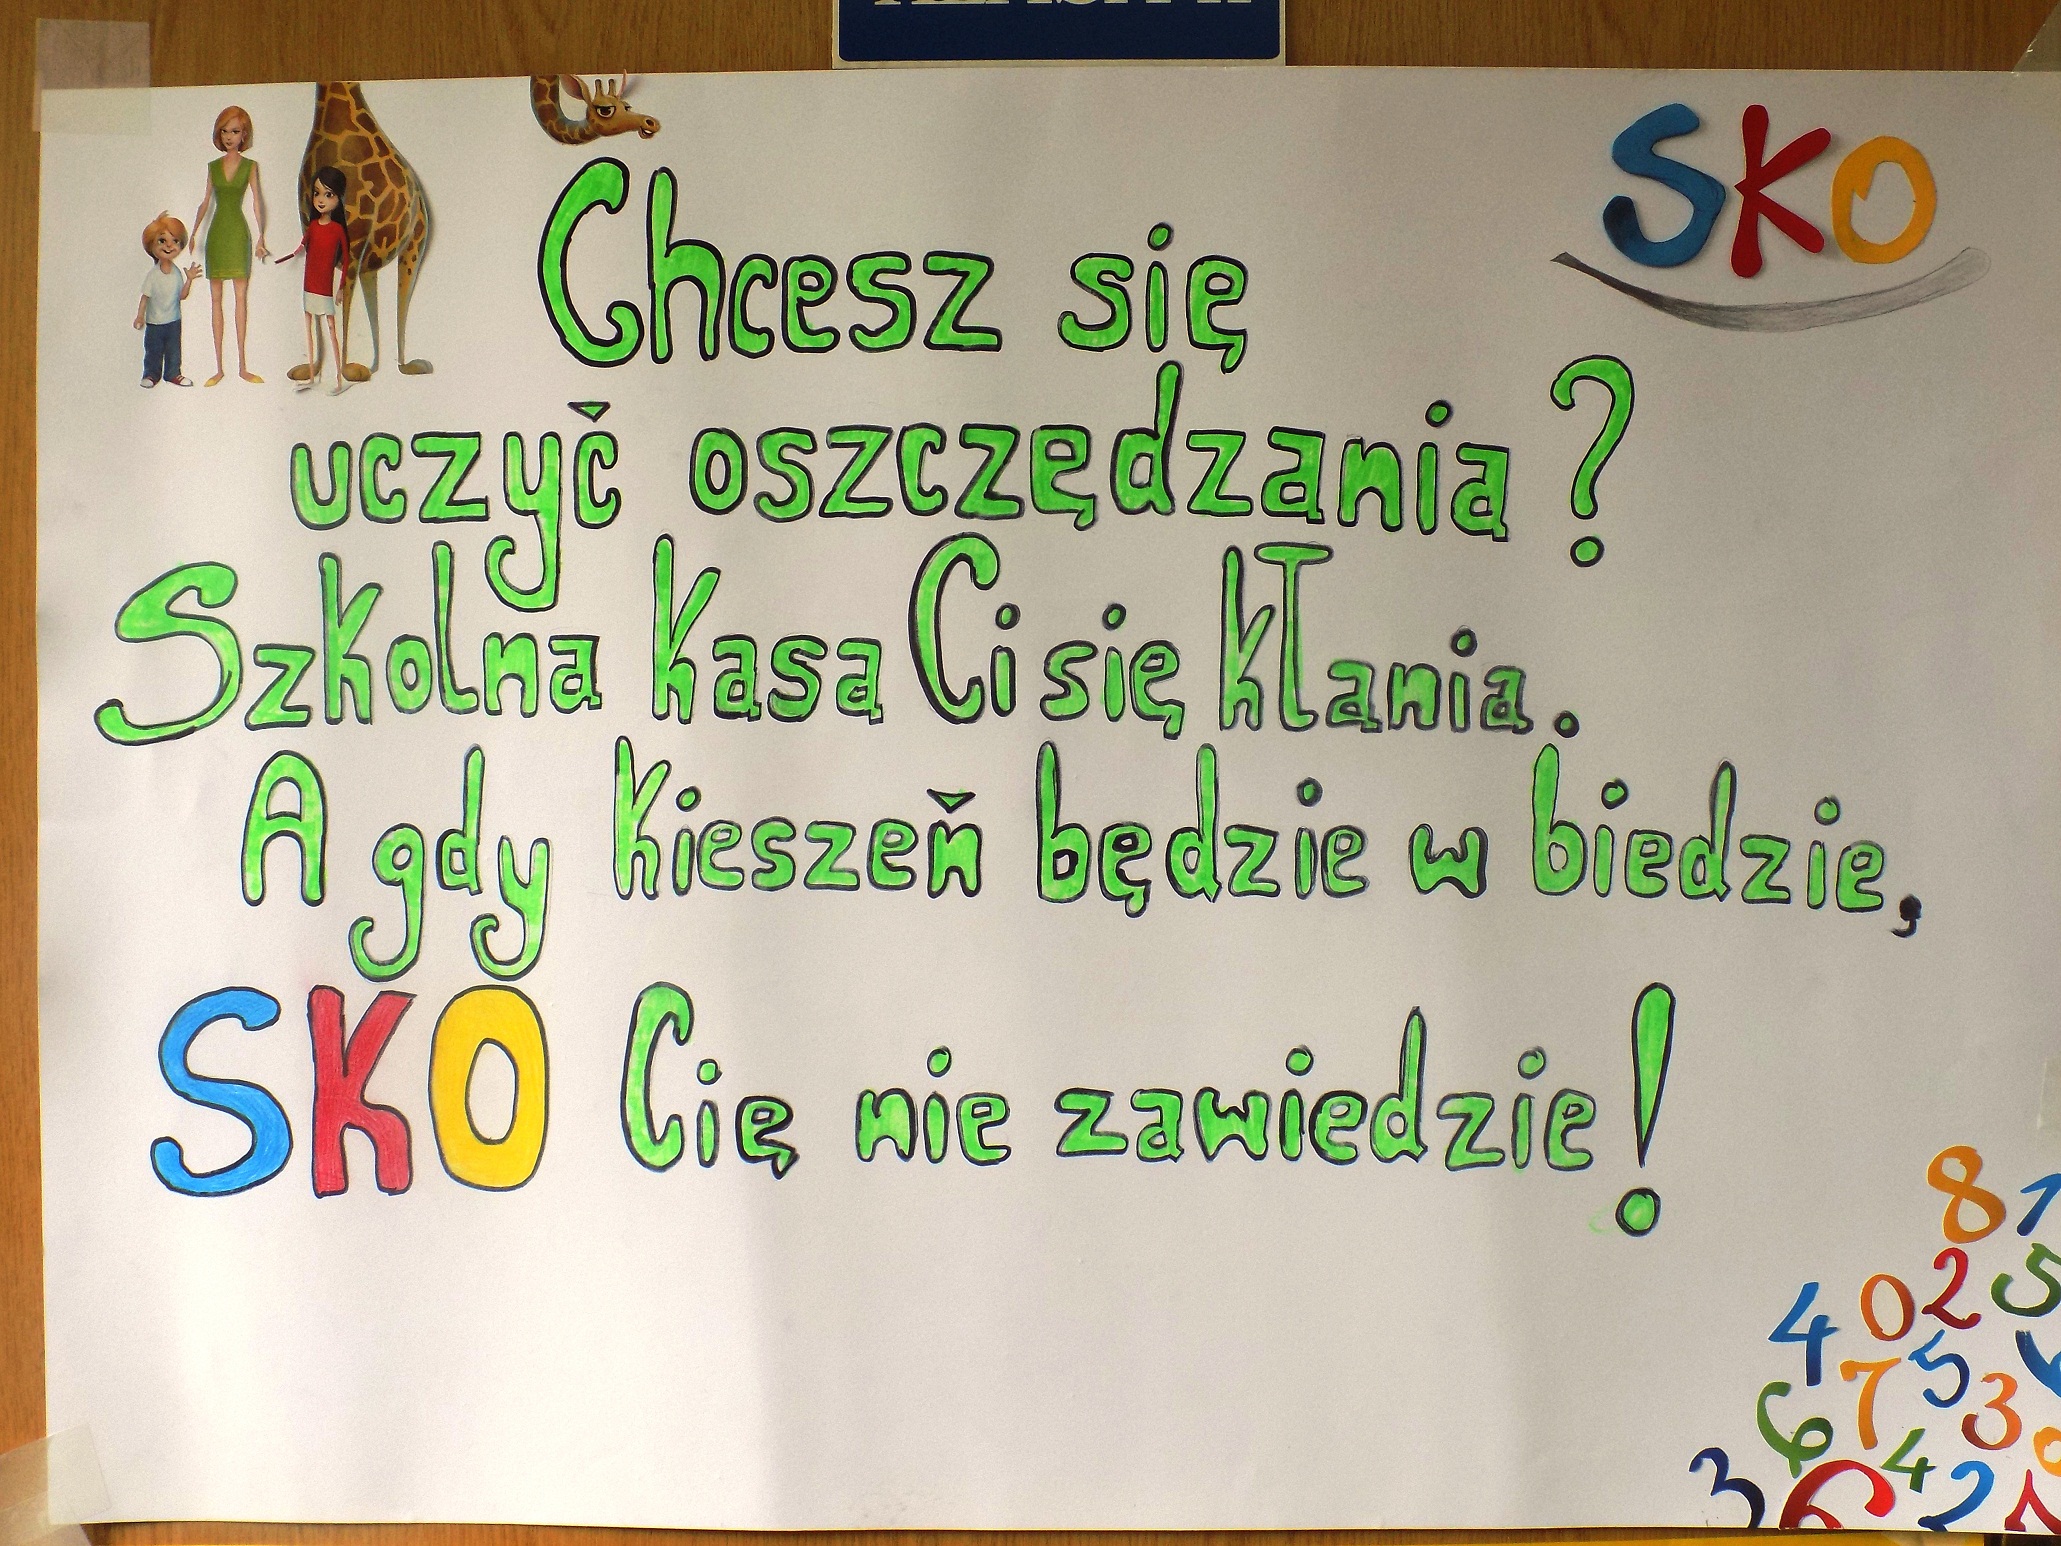 SKO
Chcesz się
uczyć oszczędzania?
Szkolna Kasa Ci się kłania.
A gdy kieszeń będzie w biedzie,
SKO Cię nie zawiedzie!
8 1
4 0 2 5
6 7 5 3
3 6 4 2